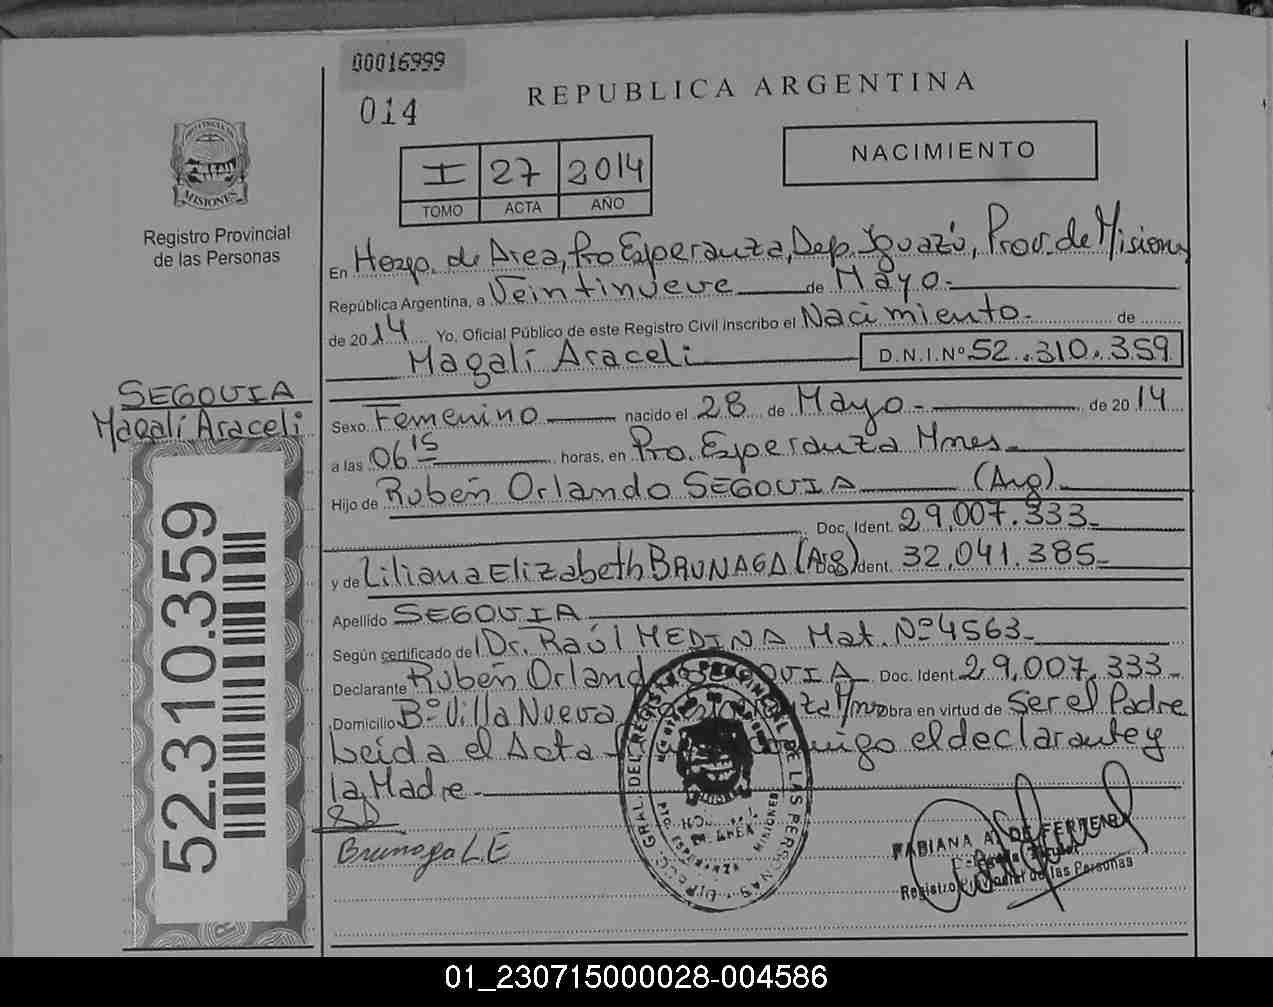 00016999
014
REPUBLICA ARGENTINA
NACIMIENTO
I 27 2014
TOMO ACTA AÑO
PROVINCIA DE
MISIONES
Registro Provincial
de las Personas
En Hosp. de Area, Pto Esperanza, Dep. Iguazú, Prov. de Misiones
República Argentina, a Veintinueve de Mayo.
de 2014 Yo, Oficial Público de este Registro Civil inscribo el Nacimiento. de
Magalí Araceli D.N.I.Nº 52.310.359
SEGOVIA
Magalí Araceli
Sexo Femenino nacido el 28 de Mayo de 2014
a las 06 15 horas, en Pto. Esperanza Mnes.
Hijo de Rubén Orlando SEGOVIA (Arg)
Doc. Ident. 29.007.333
y de Liliana Elizabeth BRUNAGA (Arg) Ident. 32.041.385
Apellido SEGOVIA
Según certificado de Dr. Raúl MEDINA Mat. Nº 4563
Declarante Rubén Orlando SEGOVIA Doc. Ident. 29.007.333
Domicilio Bº Villa Nueva obra en virtud de Ser el Padre
Leída el Acta el declarante y
la Madre
Brunaga L.E
52.310.359
DEL REGISTRO PROVINCIAL DE LAS PERSONAS
FABIANA A. DE FERREIRA
Registro Provincial de las Personas
01_230715000028-004586